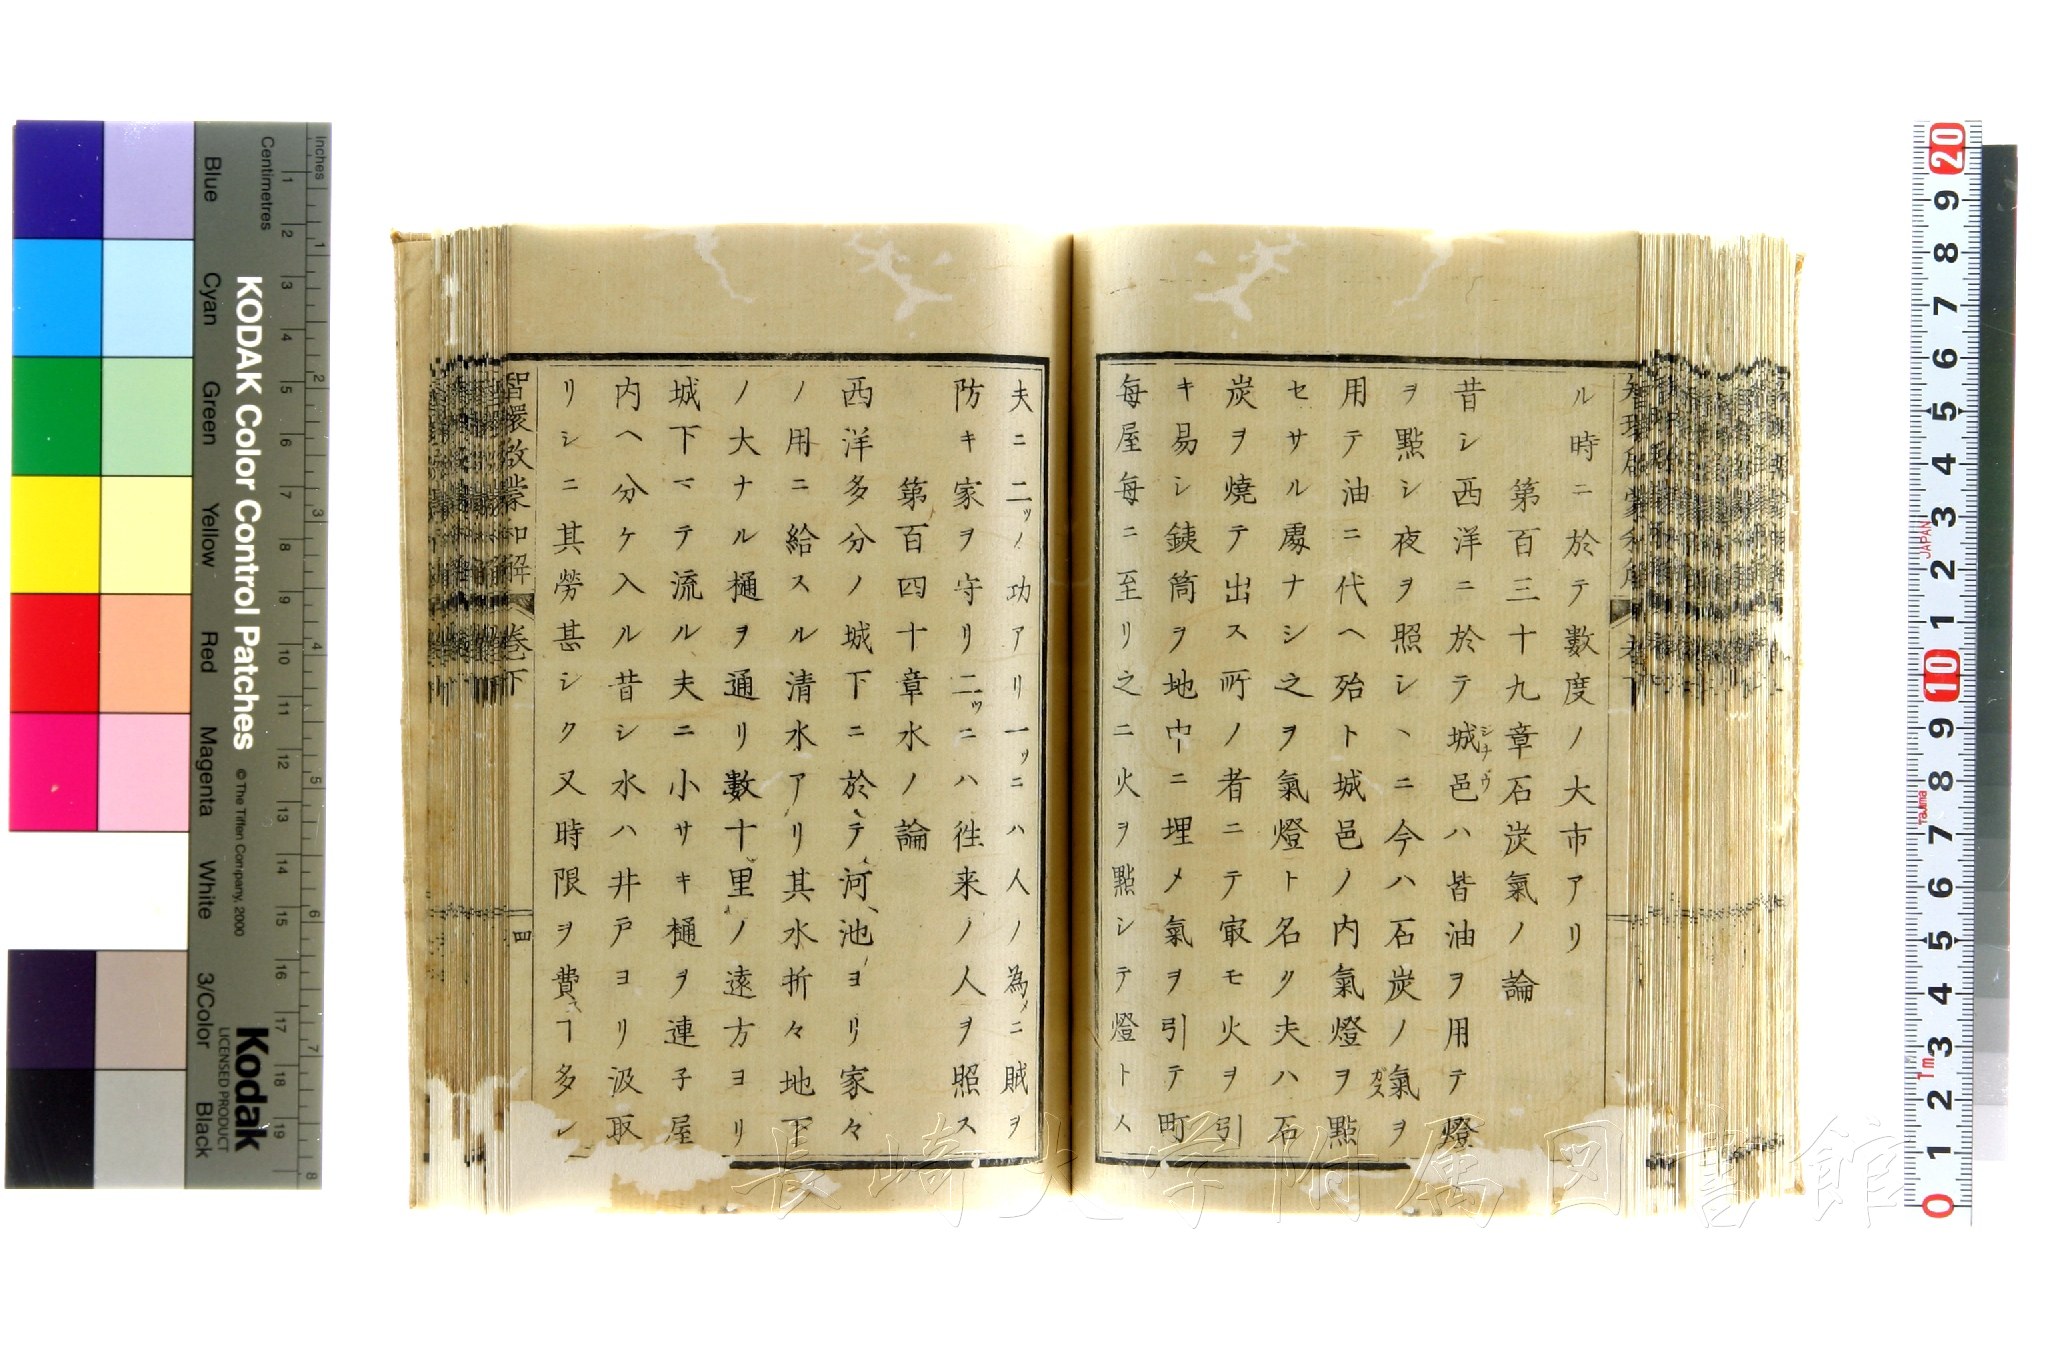 ル時ニ於テ數度ノ大市アリ
第百三十九章石炭氣ノ論
昔シ西洋ニ於テ城邑ハ皆油ヲ用テ燈
シナウ
ヲ點シ夜ヲ照シヽニ今ハ石炭ノ氣ヲ
ガス
用テ油ニ代ヘ殆ト城邑ノ内氣燈ヲ點
セサル處ナシ之ヲ氣燈ト名ク夫ハ石
炭ヲ燒テ出ス所ノ者ニテ㝡モ火ヲ引
キ易シ鉄筒ヲ地中ニ埋メ氣ヲ引テ町
每屋每ニ至リ之ニ火ヲ點シテ燈トス
夫ニ二ッノ功アリ一ッニハ人ノ為メニ賊ヲ
防キ家ヲ守リ二ッニハ徃来ノ人ヲ照ス
第百四十章水ノ論
西洋多分ノ城下ニ於テ河池ヨリ家々
ノ用ニ給スル清水アリ其水折々地下
ノ大ナル樋ヲ通リ數十里ノ遠方ヨリ
城下マテ流ル夫ニ小サキ樋ヲ連子屋
内ヘ分ケ入ル昔シ水ハ井戸ヨリ汲取
リシニ其勞甚シク又時限ヲ費ヿ多シ
智環啟蒙和解 卷下
四
長崎大学附属図書館
KODAK Color Control Patches
© The Tiffen Company, 2000
Kodak
LICENSED PRODUCT
Inches
Centimetres
Blue
Cyan
Green
Yellow
Red
Magenta
White
3/Color
Black
1 2 3 4 5 6 7 8 9 10 11 12 13 14 15 16 17 18 19
1 2 3 4 5 6 7 8
20 9 8 7 6 5 4 3 2 1 10 9 8 7 6 5 4 3 2 1 0
JAPAN
Tajima
Tm